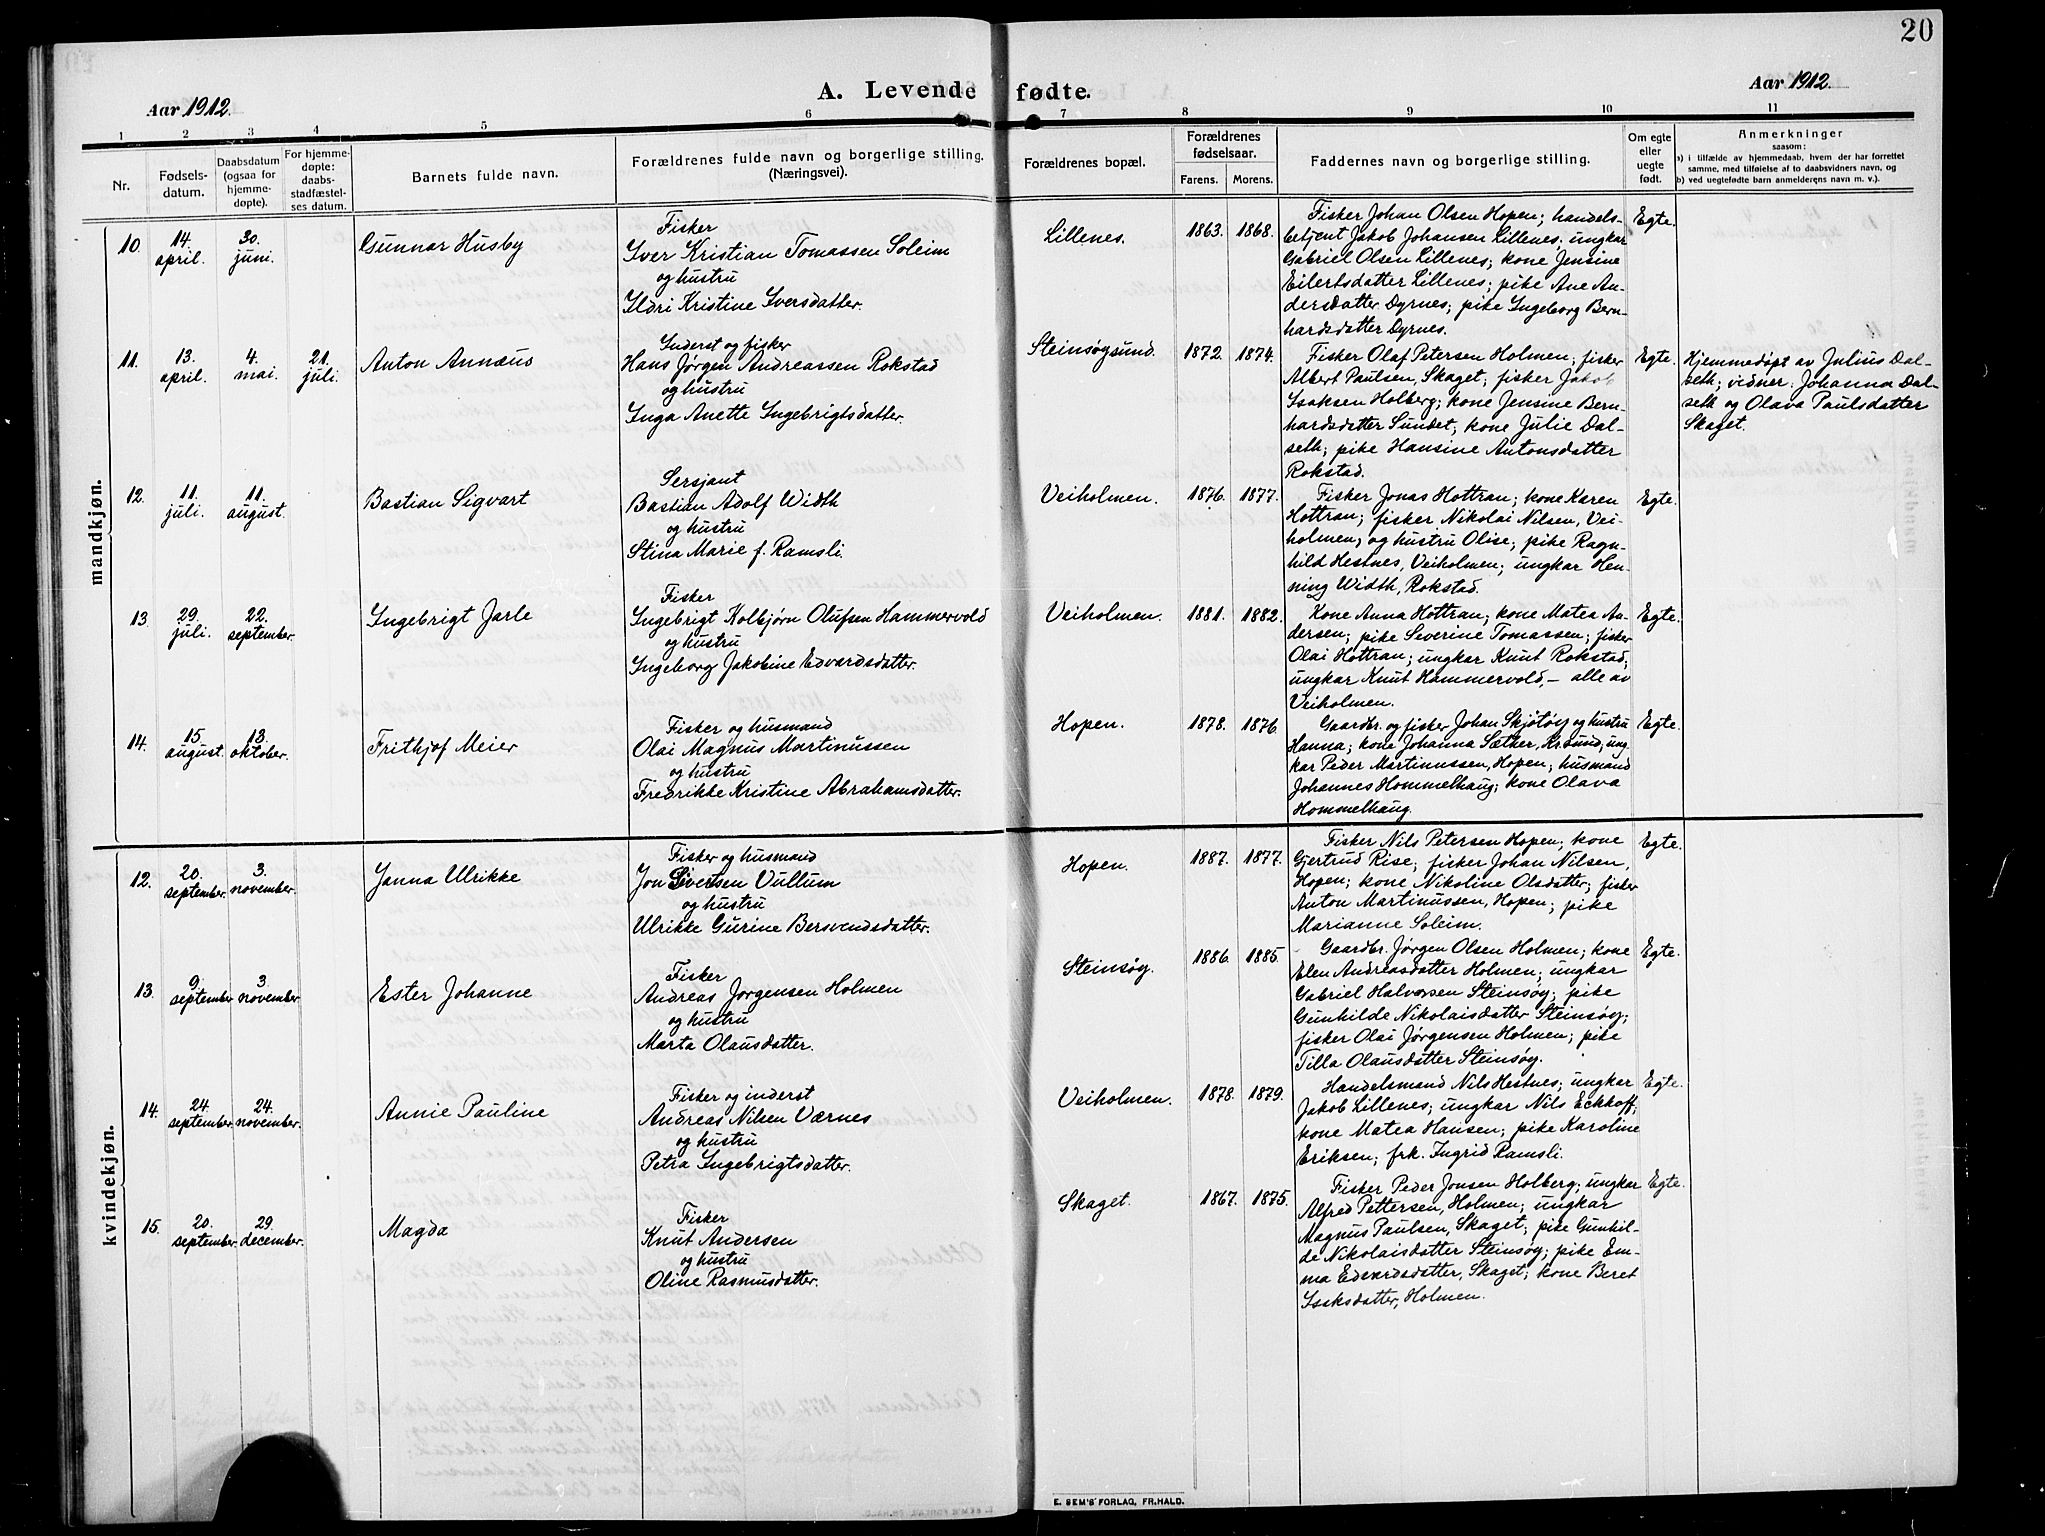 20
Aar 1912.
A. Levende fødte.
Aar 1912.
1 2 3 4 5 6 7 8 9 10 11
Nr.
Fødsels-
datum.
Daabsdatum
(ogsaa for
hjemme-
døpte).
For hjemme-
døpte:
daabs-
stadfæstel-
ses datum.
Barnets fulde navn.
Forældrenes fulde navn og borgerlige stilling.
(Næringsvei).
Forældrenes bopæl.
Forældrenes
fødselsaar.
Farens. Morens.
Faddernes navn og borgerlige stilling.
Om egte
eller
uegte
født.
Anmerkninger
saasom:
a) i tilfælde av hjemmedaab, hvem der har forrettet
samme, med tilføielse af to daabsvidners navn, og
b) ved uegtefødte barn anmelderens navn m. v.).
mandkjøn.
10.
14.
april.
30.
juni.
Gunnar Husby
Fisker
Iver Kristian Tomassen Soleim
og hustru
Ildri Kristine Iversdatter.
Lillenes.
1863. 1868.
Fisker Johan Olsen Hopen; handels-
betjent Jakob Johansen Lillenes; ungkar
Gabriel Olsen Lillenes; kone Jensine
Eilertsdatter Lillenes; pike Ane An-
dersdatter Dyrnes; pike Ingeborg Bern-
hardsdatter Dyrnes.
Egte.
11.
13.
april.
4.
mai.
21.
juli.
Anton Annæus
Inderst og fisker
Hans Jørgen Andreassen Rokstad
og hustru
Inga Anette Ingebrigtsdatter.
Steinsøysund.
1872. 1874.
Fisker Olaf Petersen Holmen; fisker
Albert Paulsen, Skaget; fisker Jakob
Isaksen Holberg; kone Jensine Bern-
hardsdatter Sundet; kone Julie Dal-
seth; pike Hansine Antonsdatter
Rokstad.
Egte.
Hjemmedøpt av Julius Dal-
seth; vidner: Johanna Dal-
seth og Olava Paulsdatter
Skaget.
12.
11.
juli.
11.
august.
Bastian Sigvart
Sersjant
Bastian Adolf Width
og hustru
Stina Marie f. Ramsli.
Veiholmen.
1876. 1877.
Fisker Jonas Hottran; kone Karen
Hottran; fisker Nikolai Nilsen, Vei-
holmen, og hustru Olise; pike Ragn-
hild Hestnes, Veiholmen; ungkar Hen-
ning Width, Rokstad.
Egte.
13
29.
juli.
22.
september.
Ingebrigt Jarle
Fisker
Ingebrigt Kolbjørn Olufsen Hammervold
og hustru
Ingeborg Jakobine Edvardsdatter.
Veiholmen.
1881. 1882.
Kone Anna Hottran; kone Matea An-
dersen; pike Severine Tomassen; fisker
Olai Hottran; ungkar Knut Rokstad;
ungkar Knut Hammervold, – alle av
Veiholmen.
Egte.
14.
15.
august.
13.
oktober.
Frithjof Meier
Fisker og husmand
Olai Magnus Martinussen
og hustru
Fredrikke Kristine Abrahamsdatter.
Hopen.
1878. 1876
Gaardbr. og fisker Johan Skjøtøy og hustru
Hanna; kone Johanna Sæther, Kr.sund; ung-
kar Peder Martinussen, Hopen; husmand
Johannes Hommelhaug; kone Olava
Hommelhaug.
Egte.
kvindekjøn.
12.
20.
september.
3.
november.
Janna Ulrikke
Fisker og husmand
Jon Sivertsen Vullum
og hustru
Ulrikke Gurine Bersvendsdatter.
Hopen.
1887. 1877.
Fisker Nils Petersen Hopen; kone
Gjertrud Rise; fisker Johan Nilsen,
Hopen; kone Nikoline Olsdatter; fisker
Anton Martinussen, Hopen; pike
Marianne Soleim.
Egte.
13.
9.
september
3.
november
Ester Johanne
Fisker
Andreas Jørgensen Holmen
og hustru
Marta Olausdatter.
Steinsøy.
1886. 1885.
Gaardbr. Jørgen Olsen Holmen; kone
Elen Andreasdatter Holmen; ungkar
Gabriel Halvorsen Steinsøy; pike
Gunhilde Nikolaisdatter Steinsøy;
fisker Olai Jørgensen Holmen; pike
Tilla Olausdatter Steinsøy.
Egte.
14.
24.
september
24.
november.
Annie Pauline
Fisker og inderst
Andreas Nilsen Værnes
og hustru
Petra Ingebrigtsdatter.
Veiholmen.
1878. 1879.
Handelsmand Nils Hestnes; ungkar
Jakob Lillenes; ungkar Nils Eckhoff;
kone Matea Hansen; pike Karoline
Eriksen; frk. Ingrid Ramsli.
Egte.
15.
20.
september.
29.
december.
Magda
Fisker
Knut Andersen
og hustru
Oline Rasmusdatter.
Skaget.
1867. 1875.
Fisker Peder Jonsen Holberg; ungkar
Alfred Pettersen, Holmen; ungkar
Magnus Paulsen, Skaget; pike Gunhil-
de Nikolaisdatter Steinsøy; pike Em-
ma Edvardsdatter, Skaget; kone Beret
Isaksdatter, Holmen.
Egte.
E. SEM'S FORLAG, FR.HALD.